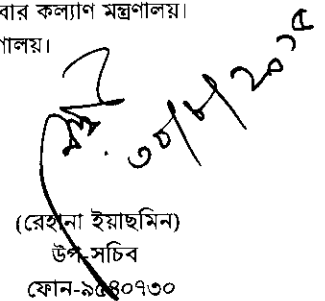 বার কল্যাণ মন্ত্রণালয়।
ণালয়।
৩০/৮/২০১৫
(রেহানা ইয়াছমিন)
উপ-সচিব
ফোন-৯৫৪০৭৩০